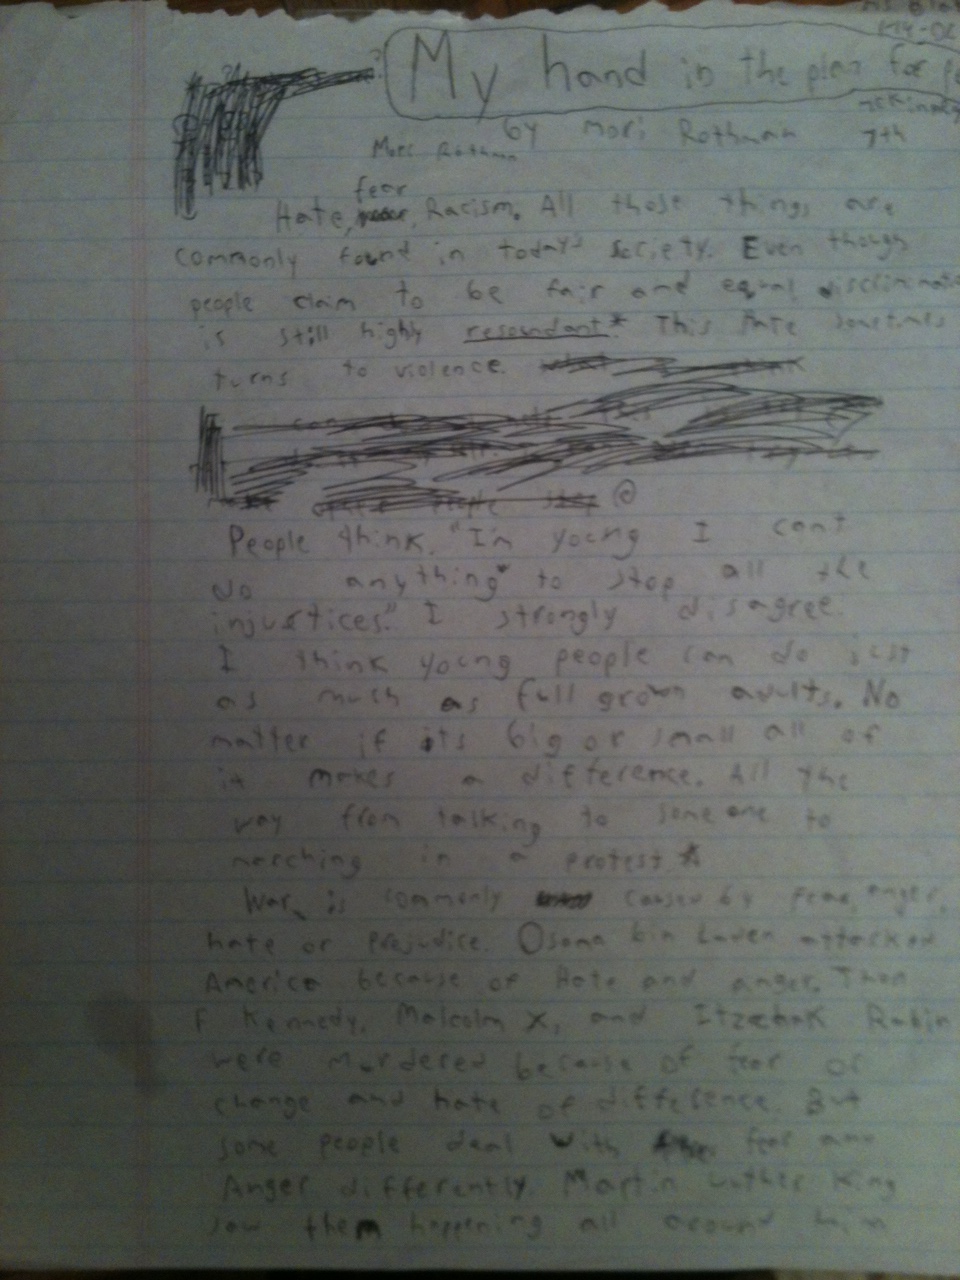 My hand in the plan for
by Mori Rothman 7th
Mori Rothman
fear
Hate, Racism. All those things are
commonly found in today's society. Even though
people claim to be fair and equal discriminatio
is still highly resoundant* This Hate sometimes
turns to violence.
People think, "I'm young I cant
do anything" to stop all the
injustices." I strongly disagree.
I think young people can do just
as much as full grown adults. No
matter if its big or small all of
it makes a difference. All the
way from talking to someone to
marching in a protest *
War is commonly caused by anger,
hate or Prejudice. Osama bin Laden attacked
America because of Hate and anger.
F Kennedy, Malcolm X, and Itzchak Rabin
were murdered because of fear of
change and hate of difference. But
some people deal with fear and
Anger differently. Martin Luther King
saw them happening all around him